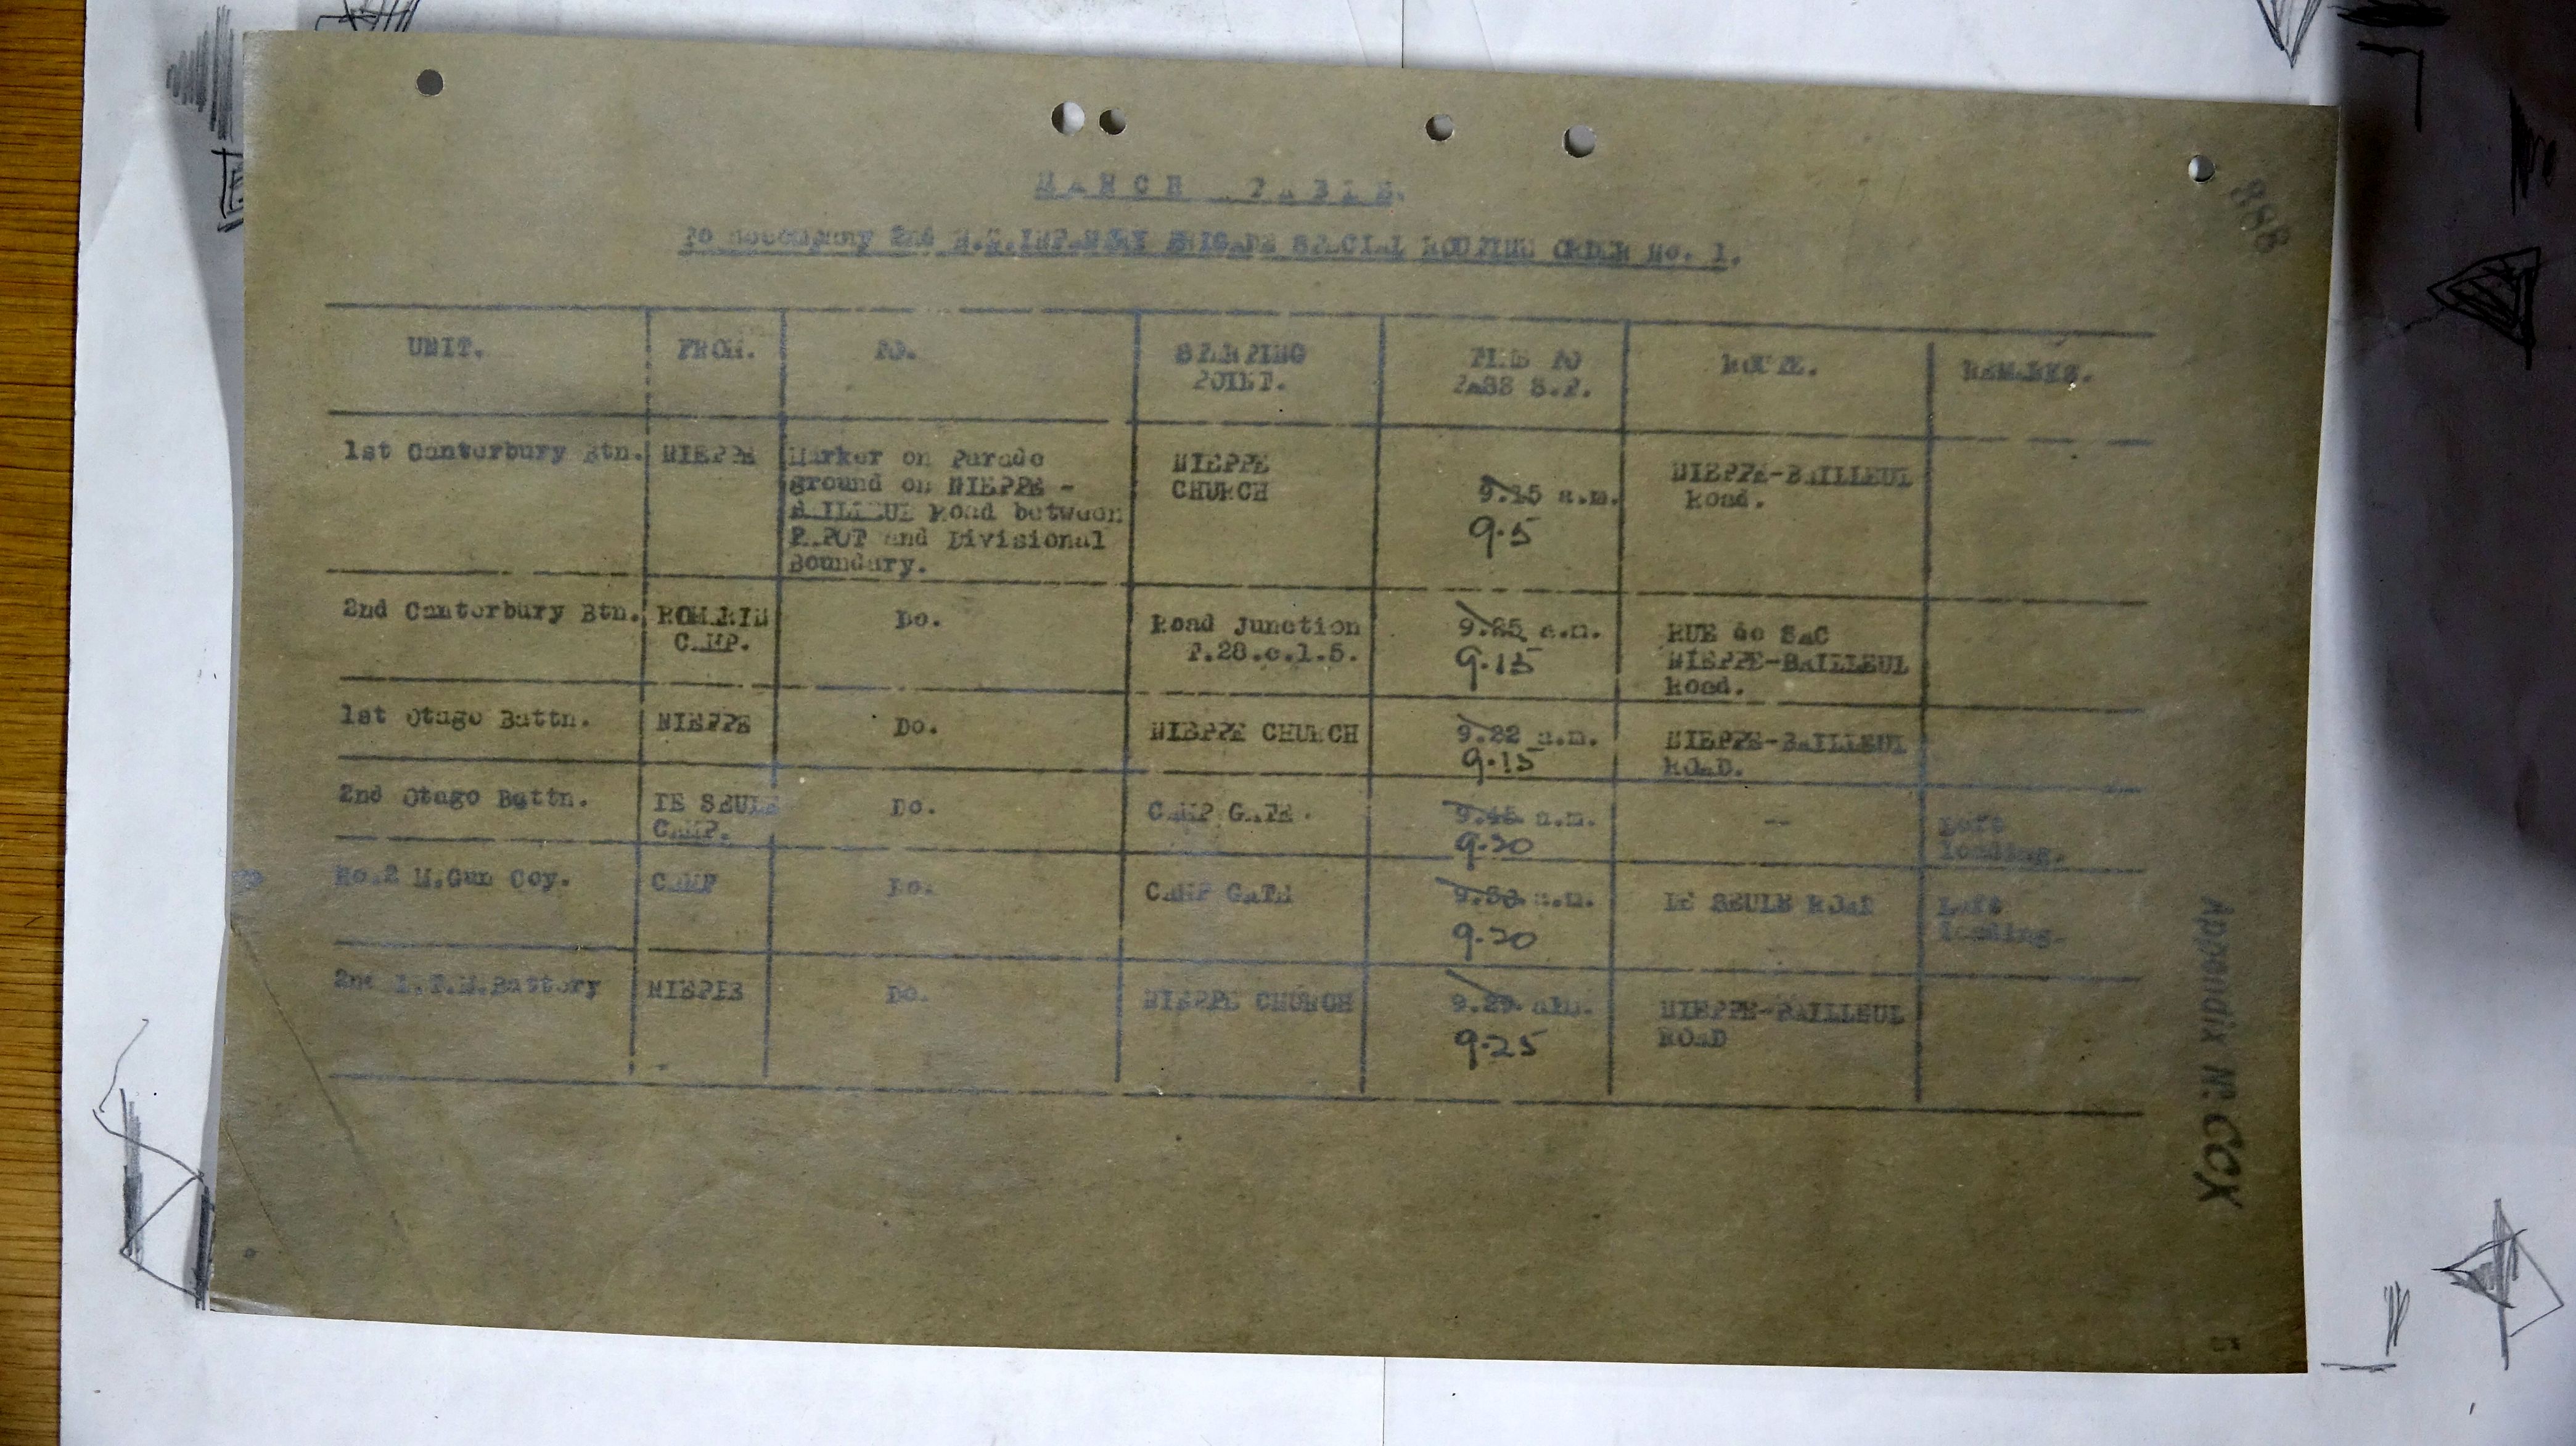 888
MARCH TABLE.
To accompany 2nd N.Z.INFANTRY BRIGADE SPECIAL ROUTINE ORDER No. 1.
UNIT. FROM. TO. STARTING POINT. TIME TO PASS S.P. ROUTE. REMARKS.
1st Canterbury Btn. NIEPPE Marker on Parade NIEPPE NIEPPE-BAILLEUL
ground on NIEPPE - CHURCH 9.15 a.m. Road.
BAILLEUL Road between 9.5
PAPOT and Divisional
Boundary.
2nd Canterbury Btn. ROMARIN Do. Road Junction 9.25 a.m. RUE de SAC
CAMP. 9.15 NIEPPE-BAILLEUL
Road.
1st Otago Battn. NIEPPE Do. NIEPPE CHURCH 9.22 a.m. NIEPPE-BAILLEUL
9.15 ROAD.
2nd Otago Battn. DE SEULE Do. CAMP GATE. a.m. -- Left
CAMP. 9.20 leading.
No.2 M.Gun Coy. CAMP Do. CAMP GATE a.m. DE SEULE ROAD Left
9.20 leading.
2nd L.T.M.Battery NIEPPE Do. NIEPPE CHURCH a.m. NIEPPE-BAILLEUL
9.25 ROAD
Appendix No. CCX